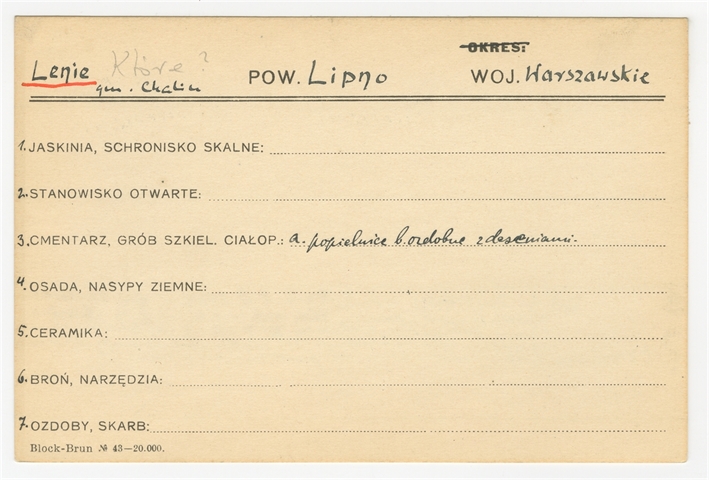 OKRES:
Lenie Które ? POW. Lipno WOJ. Warszawskie
gm. Chalin
1. JASKINIA, SCHRONISKO SKALNE:
2. STANOWISKO OTWARTE:
3. CMENTARZ, GRÓB SZKIEL. CIAŁOP.: a. popielnice b. ozdobne z deseniami.
4. OSADA, NASYPY ZIEMNE:
5. CERAMIKA:
6. BROŃ, NARZĘDZIA:
7. OZDOBY, SKARB:
Block-Brun № 43—20.000.